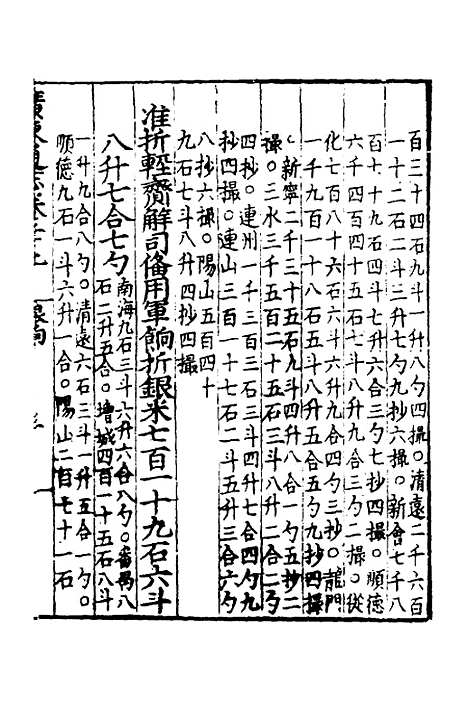 百三十四石九斗一升八勺四撮。清遠二千六百
一十二石二斗三升七勺九抄六撮。新會七千八
百七十九石四斗七升六合三勺七抄四撮。順德
六千四百四十五石八斗八升九合三勺二撮。從
化七百八十六石六斗六升九合四勺三抄。龍門
一千九百一十八石五斗八升五合五勺九抄四撮
。新寧二千三十五石九斗四升八合一勺五抄二
撮。三水三千五百二十五石三斗八升二合二勺
四抄。連州一千三百三石三斗四升七合四勺九
抄四撮。連山三百一十七石二斗五升三合六勺
八抄六撮。陽山五百四十
九石七斗八升四抄四撮
准折輕齎解司備用軍餉折銀米七百一十九石六斗
八升七合七勺
南海九石三斗六升六合八勺。番禺八
石二升五合。增城四百一十五石八斗
一升九合八勺。清遠六石三斗一升五合一勺。
順德九石一斗六升一合。陽山二百七十一石